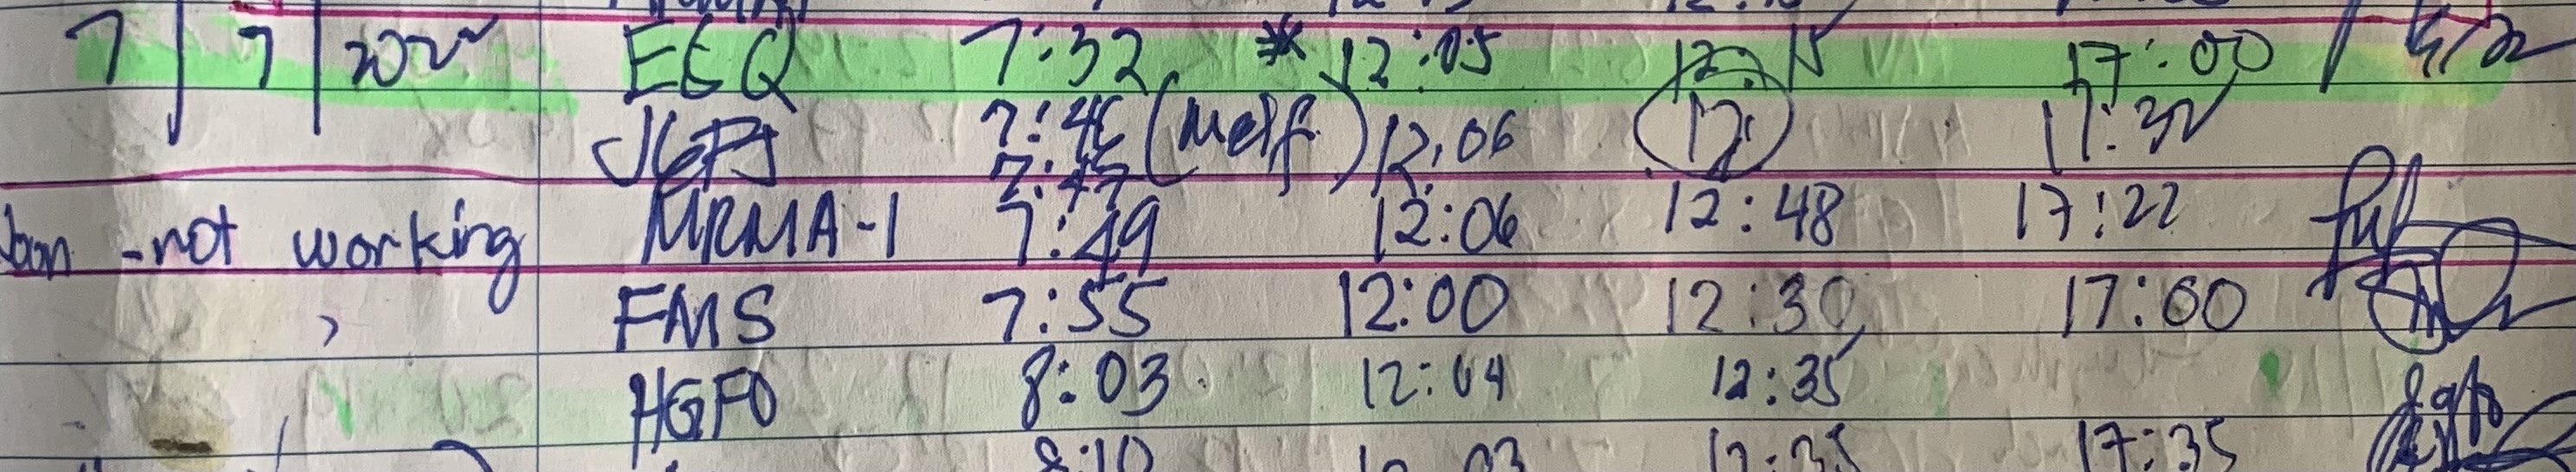 7 | 7 | 2022 EEQ 7:32 * 12:05 12:15 17:00
7:46 12:06 12: 17:32
7:47
-not working MRMA-1 7:49 12:06 12:48 17:22
FMS 7:55 12:00 12:30 17:00
HGFO 8:03 12:04 12:35
8:10 03 12:35 17:35